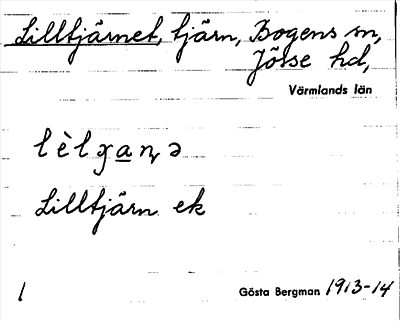 Lilltjärnet, tjärn, Bogens sn,
Jösse hd,
Värmlands län
lèlɡ̌a̲ṇə
Lilltjärn ek
1 Gösta Bergman 1913-14